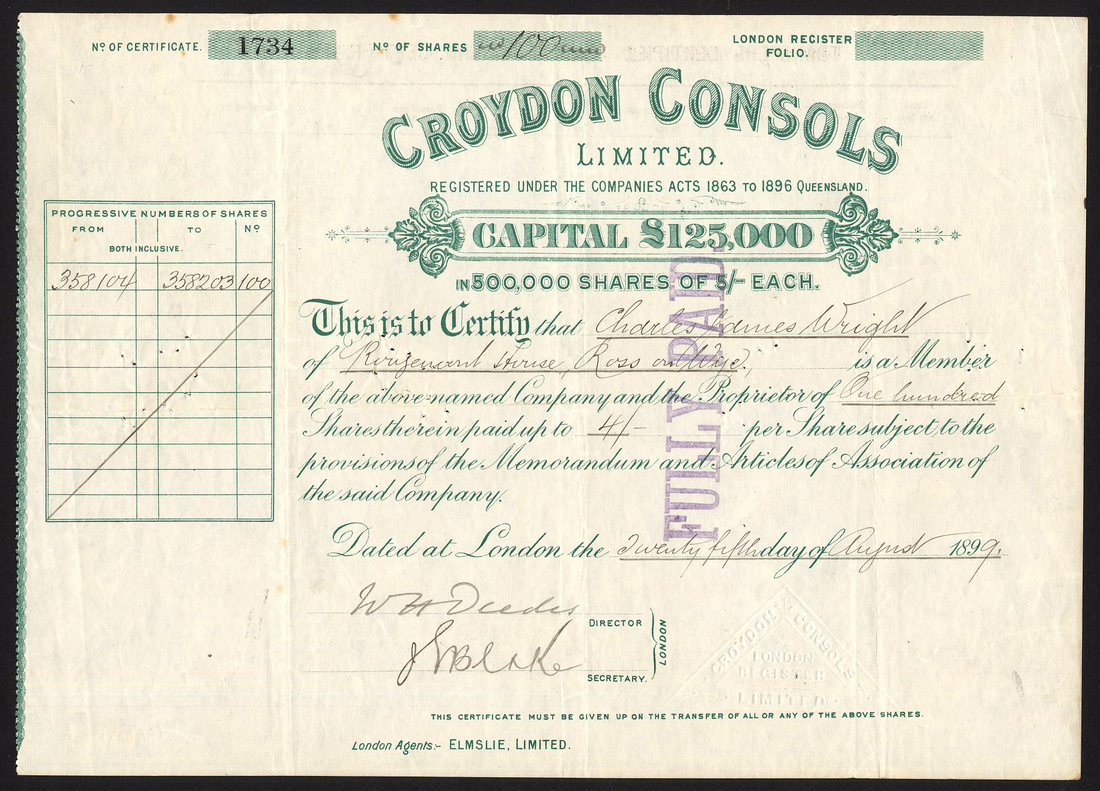 Nº OF CERTIFICATE. 1734 Nº OF SHARES 100 LONDON REGISTER FOLIO.
CROYDON CONSOLS
LIMITED.
REGISTERED UNDER THE COMPANIES ACTS 1863 TO 1896 QUEENSLAND.
CAPITAL £125,000
IN 500,000 SHARES OF 5/- EACH.
PROGRESSIVE NUMBERS OF SHARES
FROM TO Nº
BOTH INCLUSIVE.
358104 358203 100
This is to Certify that Charles James Wright
of House, Ross on Wye, is a Member
of the above-named Company and the Proprietor of One hundred
Shares therein paid up to 4/- per Share subject, to the
provisions of the Memorandum and Articles of Association of
the said Company.
FULLY PAID.
Dated at London the Twenty fifth day of August 1899.
DIRECTOR
LONDON
J Blake
SECRETARY.
CROYDON CONSOLS
LONDON
REGISTER
LIMITED
THIS CERTIFICATE MUST BE GIVEN UP ON THE TRANSFER OF ALL OR ANY OF THE ABOVE SHARES.
London Agents:- ELMSLIE, LIMITED.